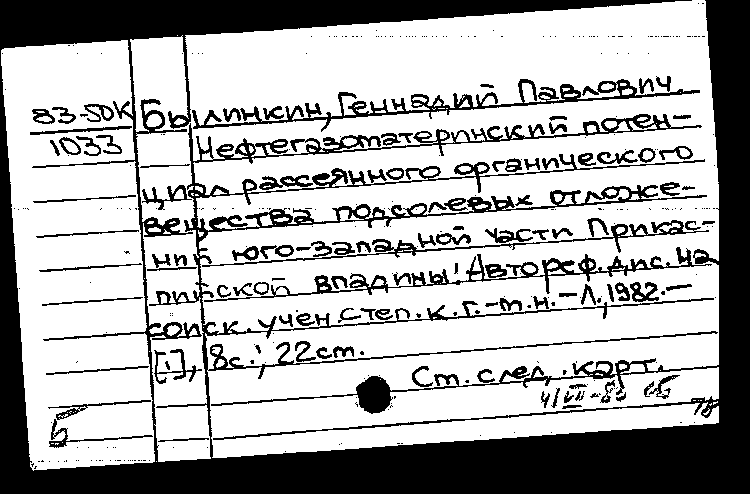 83-50К Былинкин, Геннадий Павлович.
1033 Нефтегазоматеринский потен-
циал рассеянного органического
вещества подсолевых отложе-
ний юго-западной части Прикас-
пийской впадины: Автореф. дис. на
соиск. учен. степ. к. г.-м.н. - Л., 1982. -
[:], 18с.; 22см.
См. след. карт.
Б
78